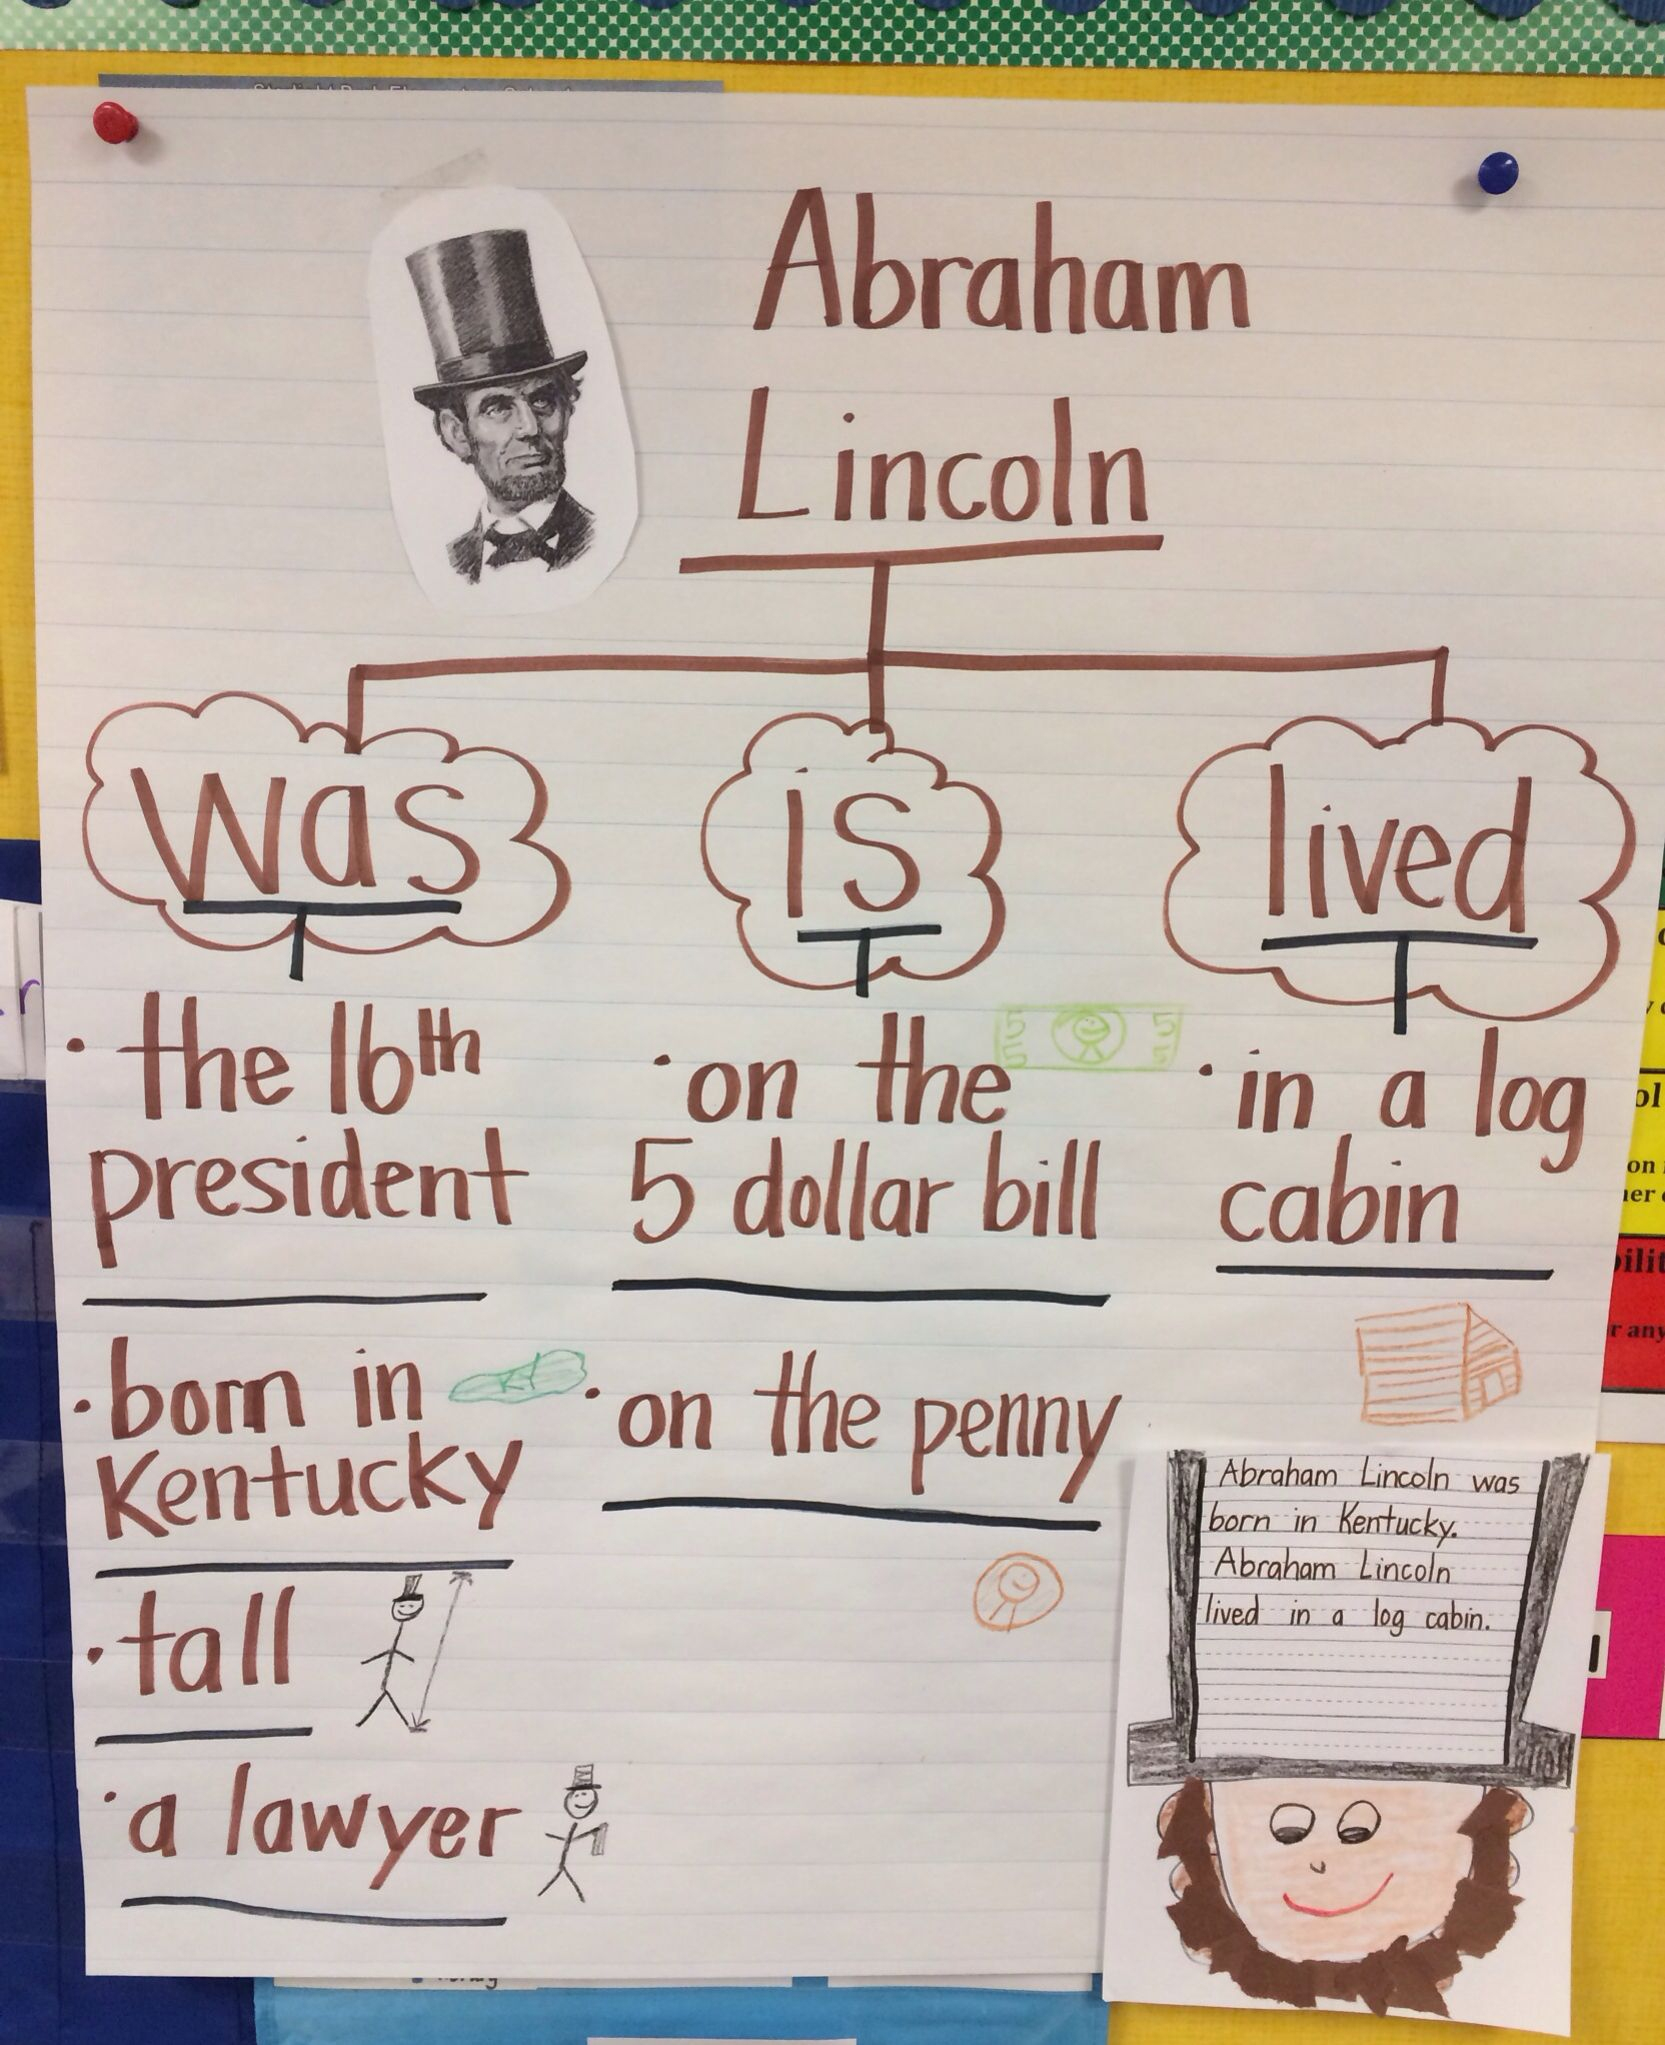 Abraham
Lincoln
was
is
lived
· the 16th
president
· born in
Kentucky
· tall
· a lawyer
· on the
5 dollar bill
· on the penny
· in a log
cabin
5 5
5 5
KY
Abraham Lincoln was
born in Kentucky.
Abraham Lincoln
lived in a log cabin.